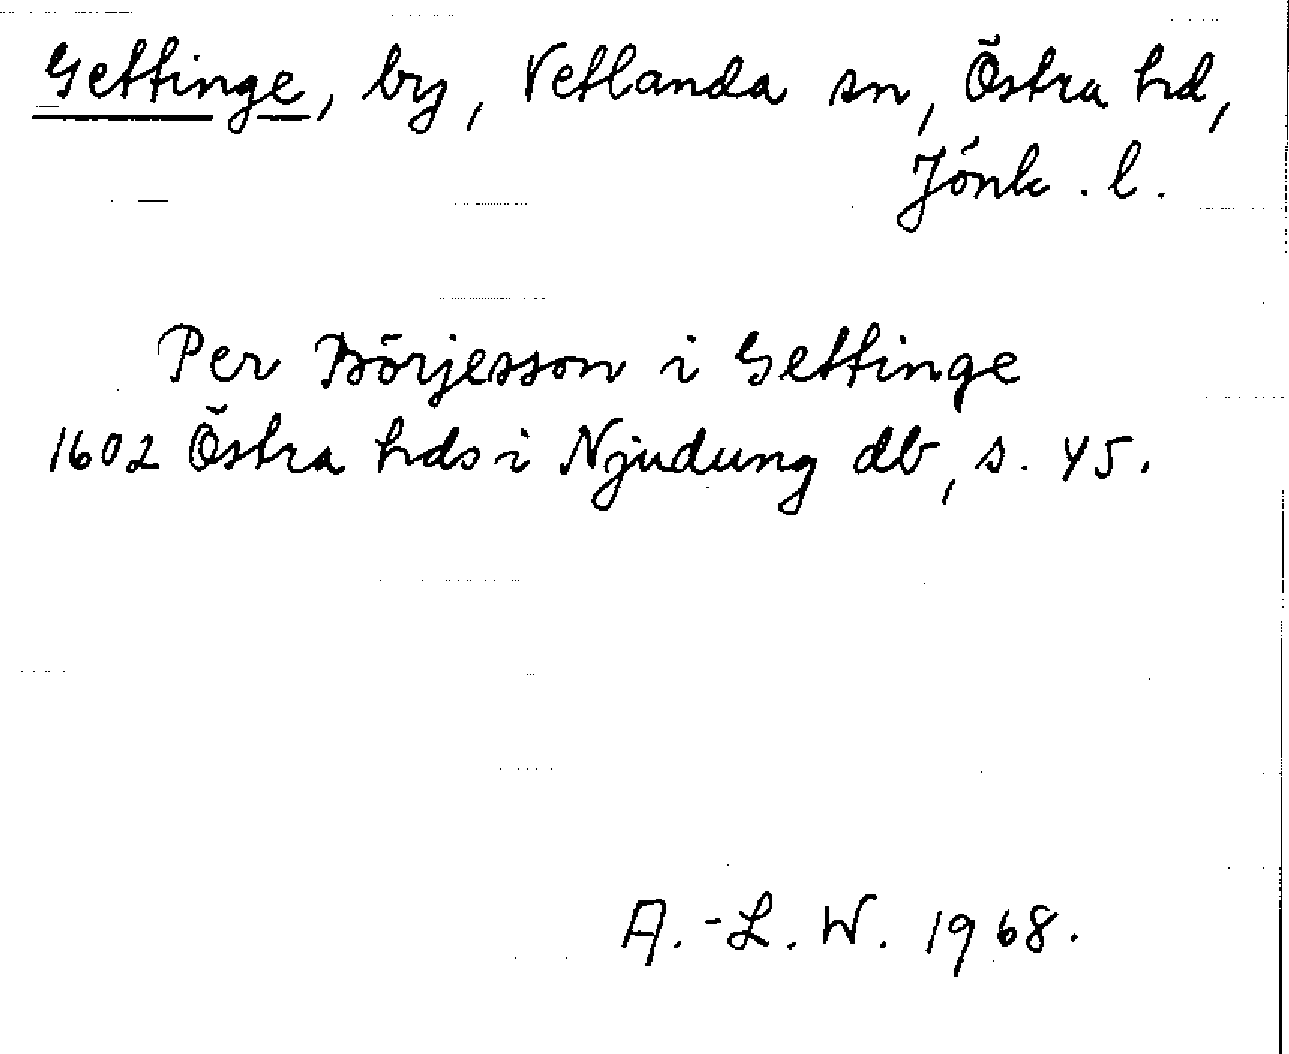 Gettinge, by, Vetlanda sn, Östra hd,
Jönk. l.
Per Börjesson i Gettinge
1602 Östra hds i Njudung db, s. 45.
A.-L. W. 1968.